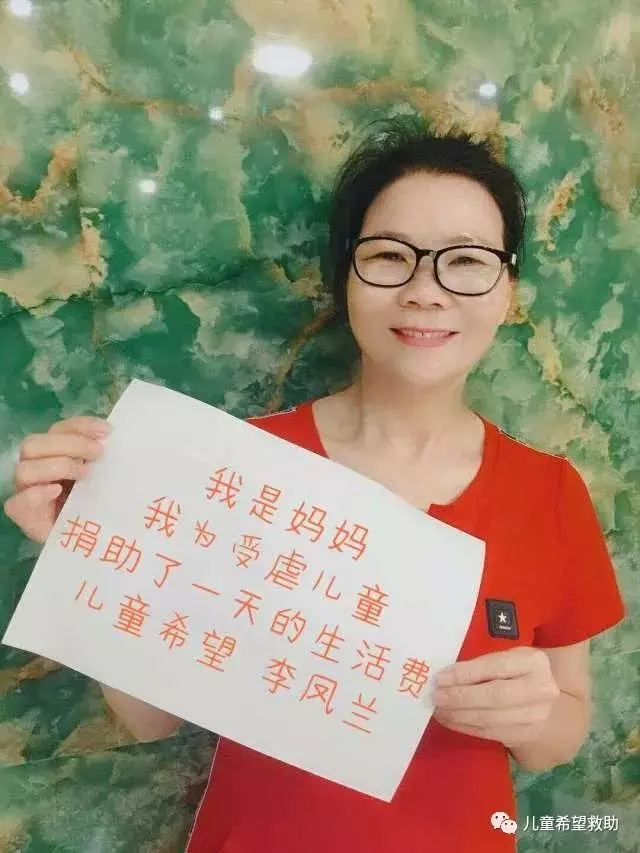 我是妈妈
我为受虐儿童
捐助了一天的生活费
儿童希望 李凤兰
儿童希望救助